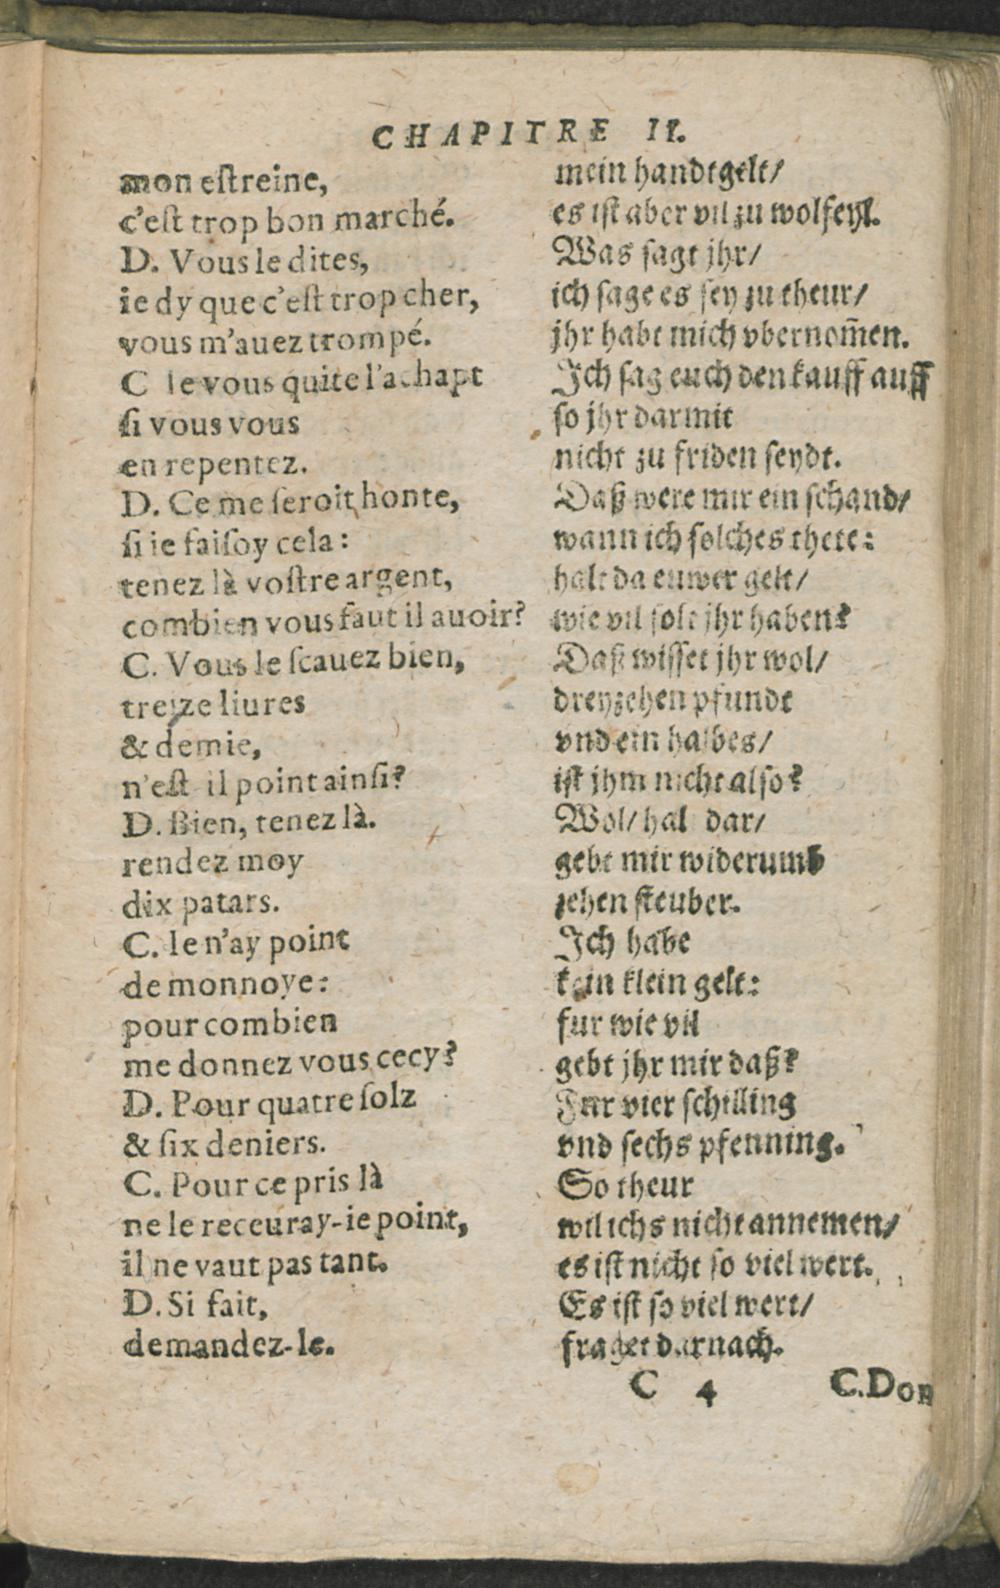 CHAPITRE II.
mon eſtreine,
c'eſt trop bon marché.
D. Vous le dites,
ie dy que c'eſt trop cher,
vous m'auez trompé.
C Ie vous quite l'achapt
ſi vous vous
en repentez.
D. Ce me ſeroit honte,
ſi ie faiſoy cela:
tenez là voſtre argent,
combien vous faut il auoir?
C. Vous le ſcauez bien,
treize liures
& demie,
n'eſt il point ainſi?
D. Bien, tenez là.
rendez moy
dix patars.
C. Ie n'ay point
de monnoye:
pour combien
me donnez vous cecy?
D. Pour quatre ſolz
& ſix deniers.
C. Pour ce pris là
ne le receuray-ie point,
il ne vaut pas tant.
D. Si fait,
demandez-le.
mein handtgelt/
es iſt aber vil zu wolfeyl.
Was ſagt jhr/
ich ſage es ſey zu theur/
jhr habt mich vbernom̃en.
Ich ſag euch den kauff auff
ſo jhr darmit
nicht zu friden ſeydt.
Daß were mir ein ſchand/
wann ich ſolches thete:
halt da euwer gelt/
wie vil ſolt jhr haben?
Daß wiſſet jhr wol/
dreyzehen pfundt
vnd ein halbes/
iſt jhm nicht alſo?
Wol/ hal dar/
gebt mir widerumb
zehen ſteuber.
Ich habe
kein klein gelt:
fur wie vil
gebt jhr mir daß?
Fur vier ſchilling
vnd ſechs pfenning.
So theur
wil ichs nicht annemen/
es iſt nicht ſo viel wert.
Es iſt ſo viel wert/
fraget darnach.
C 4
C. Don